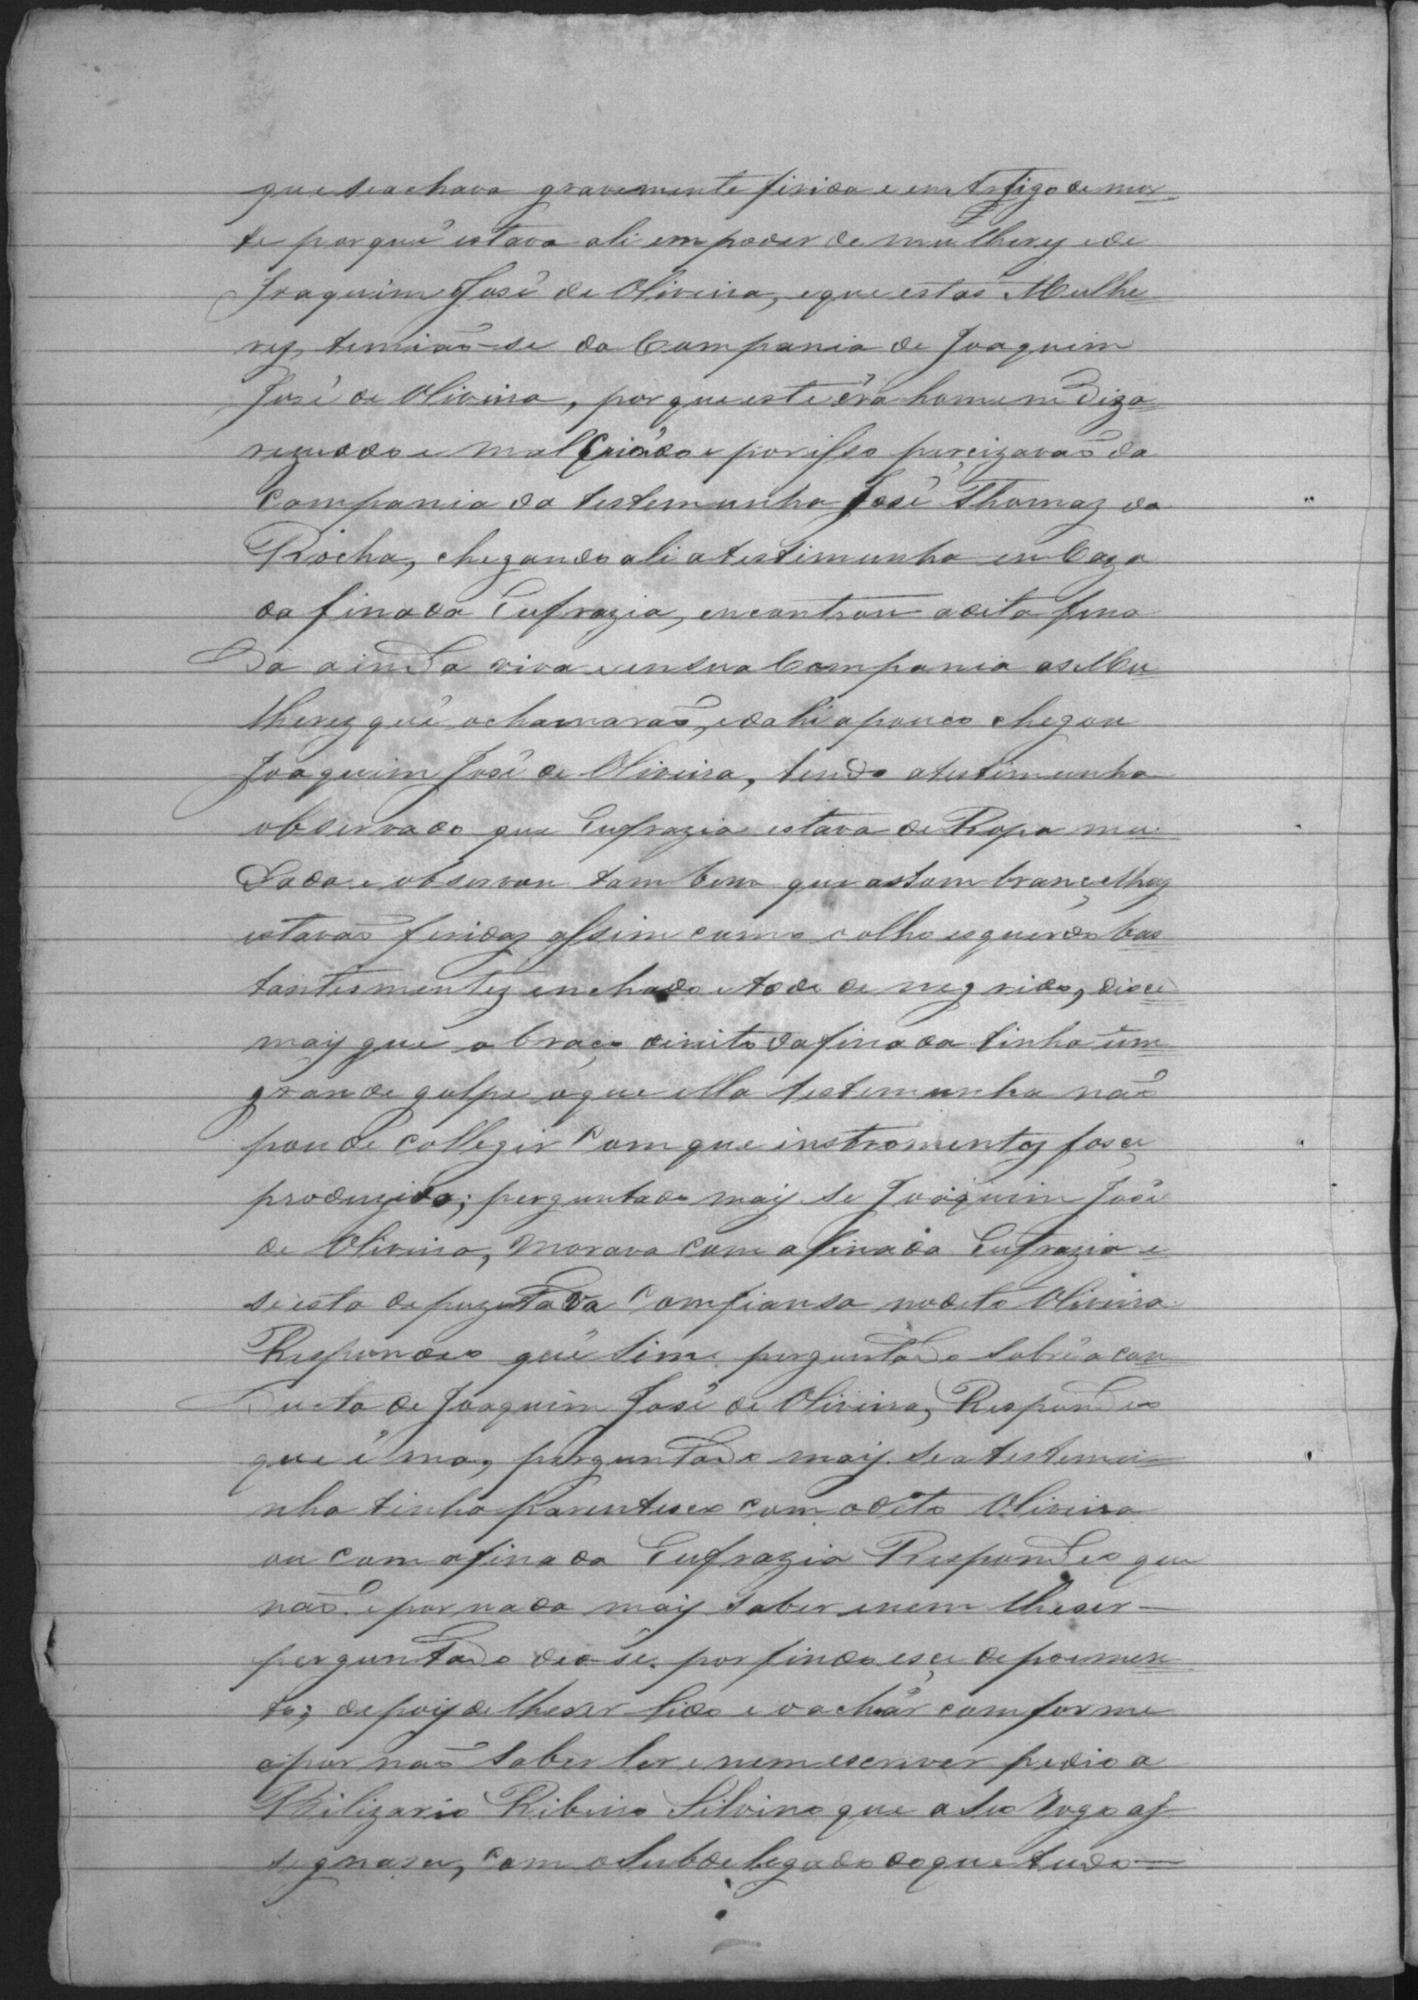 que seachava gravemente firida e em Artigo de mor
te por que estava ali em poder de mulherez e de
Joaquim José de Oliveira, e que estas Mulhe
rez, temiaõ-se da Companía de Joaquim
José de Oliveira, por que este éra homem Diza
rezuado e mal Criádo e porisso percizavaõ da
Companía da testemunha José Thomaz da
Rocha, chegando ali atestimunha em Caza
da finada Eufrazia, encontrou adita fina
Da ainda viva e emsua Companía as Mu
lherez que ochamaraõ, e dahi apouco chegou
Joaquim José de Oliveira, tendo atestimunha
observado que Eufrazia estava de Ropa mu
Dada e observou tambem que assombrançelhaz
estavaõ feridaz assim como o olho esquerdo bas
tantesmentez enchado e tode de negrido, dice
maiz que o braço direito dafinada tinha um
grande golpe oque ella testemunha naõ
poude collegir Com que instromentoz foçe
produzido; perguntado maiz se Joaquim José
de Oliveira, morava Com afinada Eufrazia e
se esta depuzitava Comfiansa nodito Oliveira
Respondeo que sim e perguntado sobre a con
Ducta de Joaquim José de Oliveira, Respondeo
que é ma, perguntado maiz se a testemu
nha tinha Parentesco com odito Oliveira
ou com afinada Eufrazia Respondeo que
naõ. e por nada maiz saber e nem lheser
perguntado deo-se por findo esçe depoimen
to; depoiz de lheser lido e o achár comforme
epor naõ saber ler e nem escriver pedio a
Bilizario Ribeiro Silvino que a seo Rogo as
segnaçe, Com o Subdelegado doque tudo